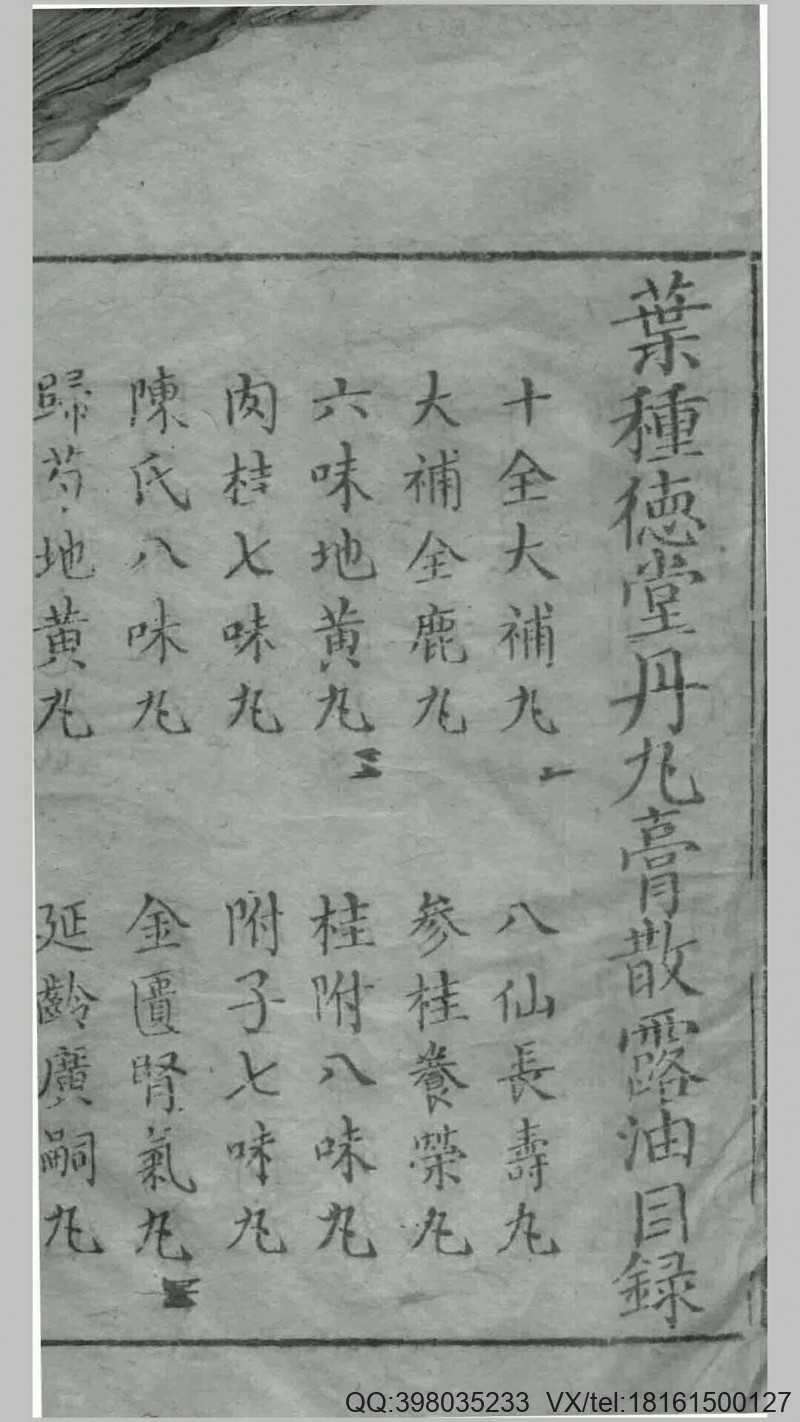 葉種德堂丹丸膏散露油目錄
十全大補丸 八仙長壽丸
大補全鹿丸 參桂養榮丸
六味地黃丸 桂附八味丸
肉桂七味丸 附子七味丸
陳氏八味丸 金匱腎氣丸
歸芍地黃丸 延齡廣嗣丸
QQ:398035233 VX/tel:18161500127